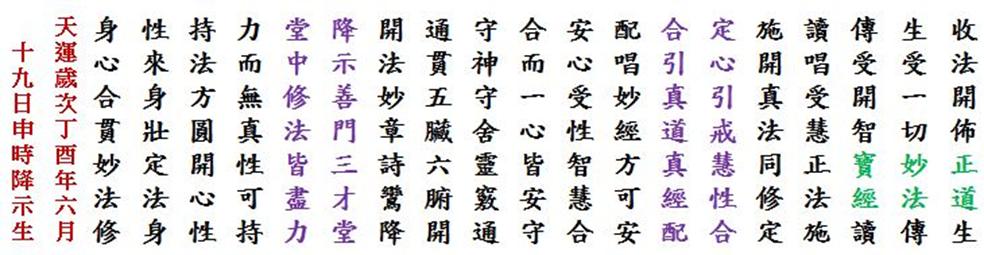 收法開佈正道生
生受一切妙法傳
傳受開智寶經讀
讀唱受慧正法施
施開真法同修定
定心引戒慧性合
合引真道真經配
配唱妙經方可安
安心受性智慧合
合而一心皆安守
守神守舍靈竅通
通貫五臟六腑開
開法妙章詩鸞降
降示善門三才堂
堂中修法皆盡力
力而無真性可持
持法方圓開心性
性來身壯定法身
身心合貫妙法修
天運歲次丁酉年六月
十九日申時降示生